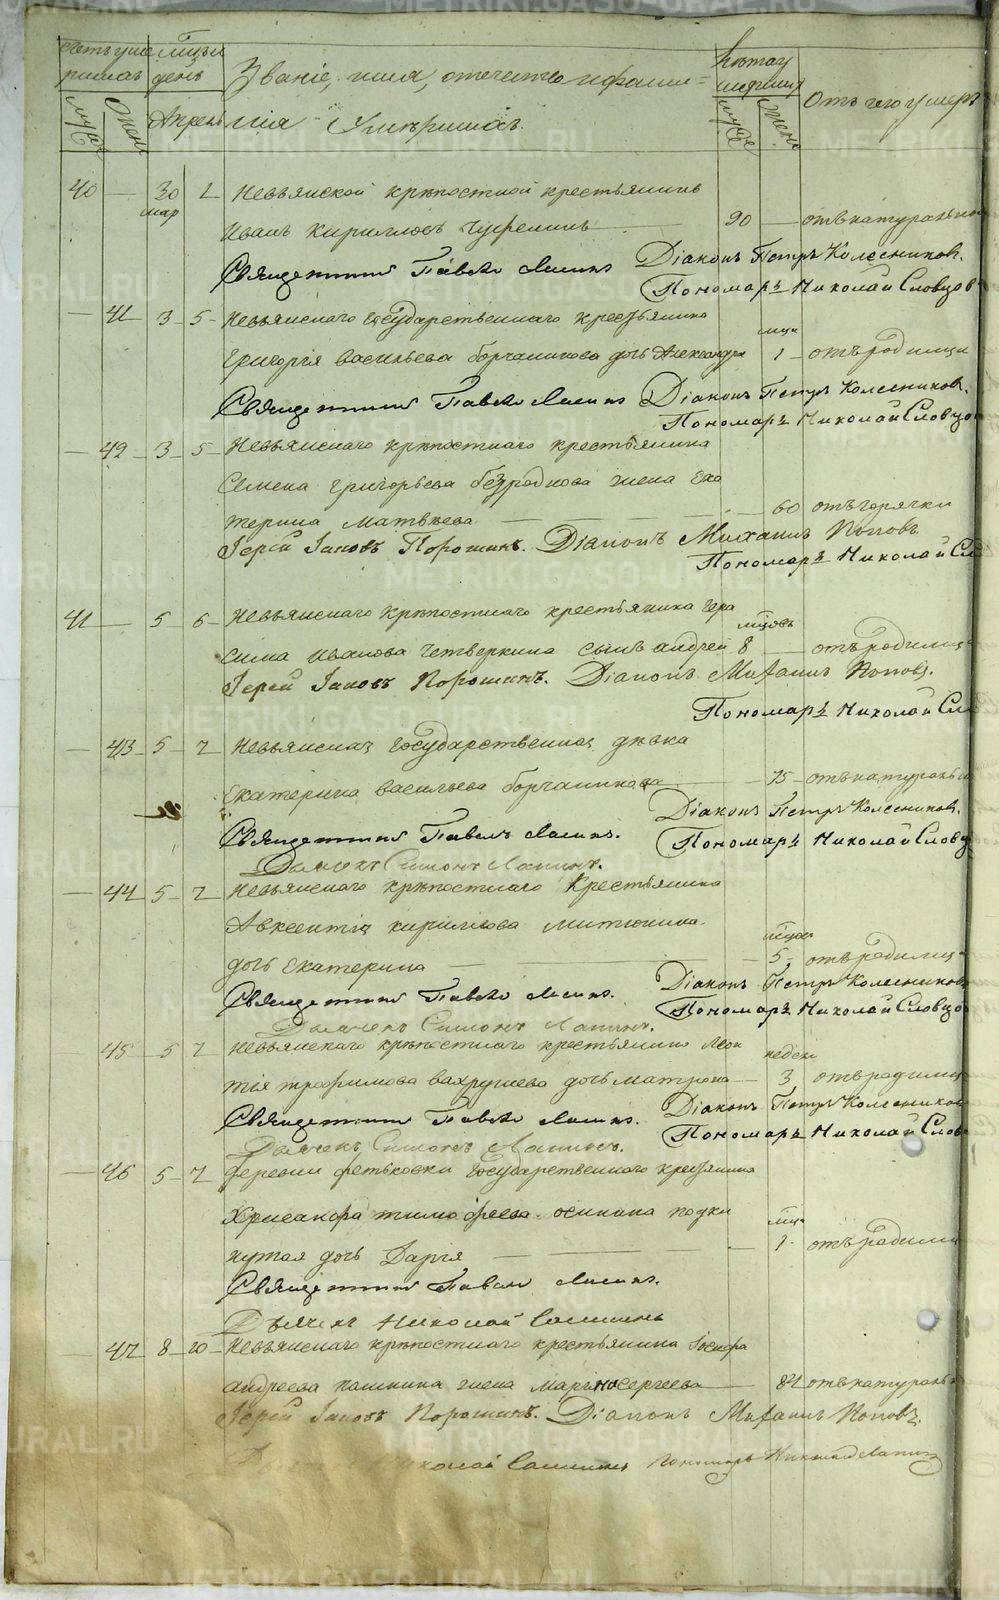 Званіе, имя, отечество и фами=
лія Умершихъ.
Отъ чего умеръ
муж. жен. Апрель
40 — 30 мар 1 Невьянской крѣпостной крестьянинъ
Иванъ Кирилловъ 90 — отъ натуральной
Священникъ Павелъ Діаконъ Петръ Колесниковъ.
Пономарь Николай Словцов
— 41 3 5 Невьянскаго государственнаго крестьянина
Григорія Васильева Борчанинова дочь Александра 1 отъ родимца
Священникъ Павелъ Діаконъ Петръ Колесниковъ.
Пономарь Николай Словцо
— 42 3 5 Невьянскаго крѣпостнаго крестьянина
Семена Григорьева Безроднова жена Ека
терина Матвѣева — 60 отъ горячки
Іерей Іаковъ Порошинъ. Діаконъ Михаилъ Поповъ.
Пономарь Николай Сл
41 — 5 6 Невьянскаго крѣпостнаго крестьянина Гера
сима Иванова Четверкина сынъ Андрей 8 — отъ родимца
Іерей Іаковъ Порошинъ. Діаконъ Михаилъ Поповъ.
Пономарь Николай Сл
— 43 5 7 Невьянская государственная дѣвка
Екатерина Васильева Борчанинова — 75 отъ натураль
Священникъ Павелъ Діаконъ Петръ Колесниковъ.
Пономарь Николай Словц
Дьячекъ Симонъ Лапинъ.
— 44 5 7 Невьянскаго крѣпостнаго крестьянина
Авксентія Кирилова Митюнина
дочь Екатерина — 5 отъ родимца
Священникъ Павелъ Діаконъ Петръ Колесниковъ
Пономарь Николай Словцо
Дьячекъ Симонъ Лапинъ.
45 5 7 Невьянскаго крѣпостнаго крестьянина Леон
тія Трофимова Вахрушева дочь Матрона — 3 отъ родимца
Священникъ Павелъ Діаконъ Петръ Колесников
Пономарь Николай Слов
Дьячекъ Симонъ Лапинъ.
— 46 5 7 Деревни Фетьковки государственнаго крестьянина
Хрисанфа Тимофеева Осинина подки
нутая дочь Дарія — 1 отъ родимца
Священникъ Павелъ
Дьячекъ Николай
— 47 8 10 Невьянскаго крѣпостнаго крестьянина Іосифа
Андреева Пашнина жена Марина Сергеева — 84 отъ натураль
Іерей Іаковъ Порошинъ. Діаконъ Михаилъ Поповъ.
Николай Пономарь Лапинъ
METRIKI.GASO-URAL.RU